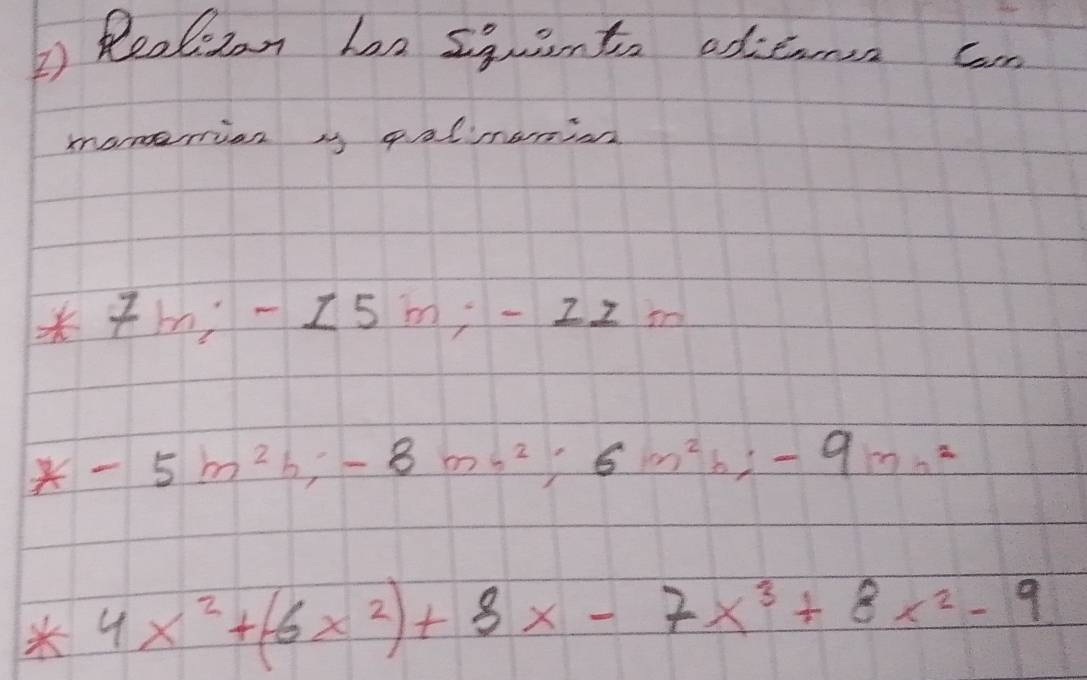 1) Realizar las siguientes adiciones con
monomios y polinomios
* 7m; - 15m; - 22m
* - 5m²n; - 8mn²; 6m²n; - 9mn²
* 4x² + (-6x²) + 8x - 7x³ + 8x² - 9